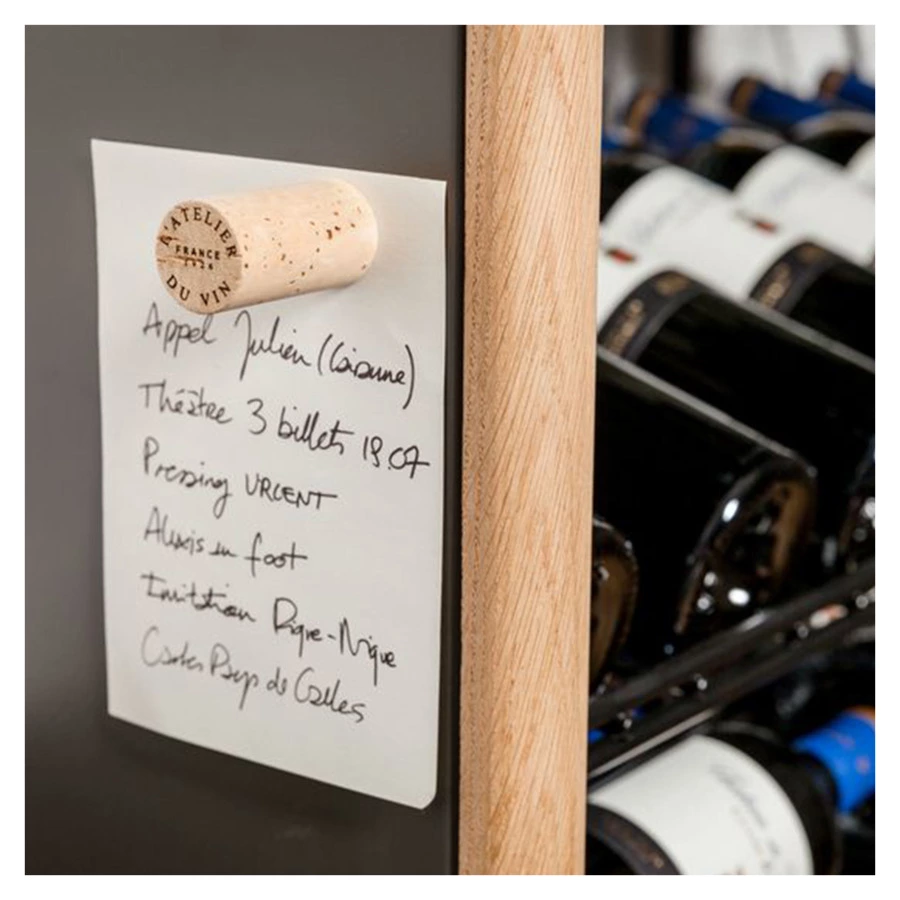 L'ATELIER
FRANCE
1926
DU VIN
Appel Julien (Cuisine)
Théâtre 3 billets 19.07
Pressing URGENT
Alexis foot
Invitation Pique-Nique
Cartes Pays de Galles